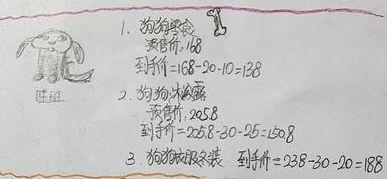 1. 狗狗零食
预售价,168
到手价=168-20-10=138
旺旺
2. 狗狗沐浴露
预售价,205.8
到手价=205.8-30-25=150.8
3. 狗狗衣服冬装 到手价=238-30-20=188